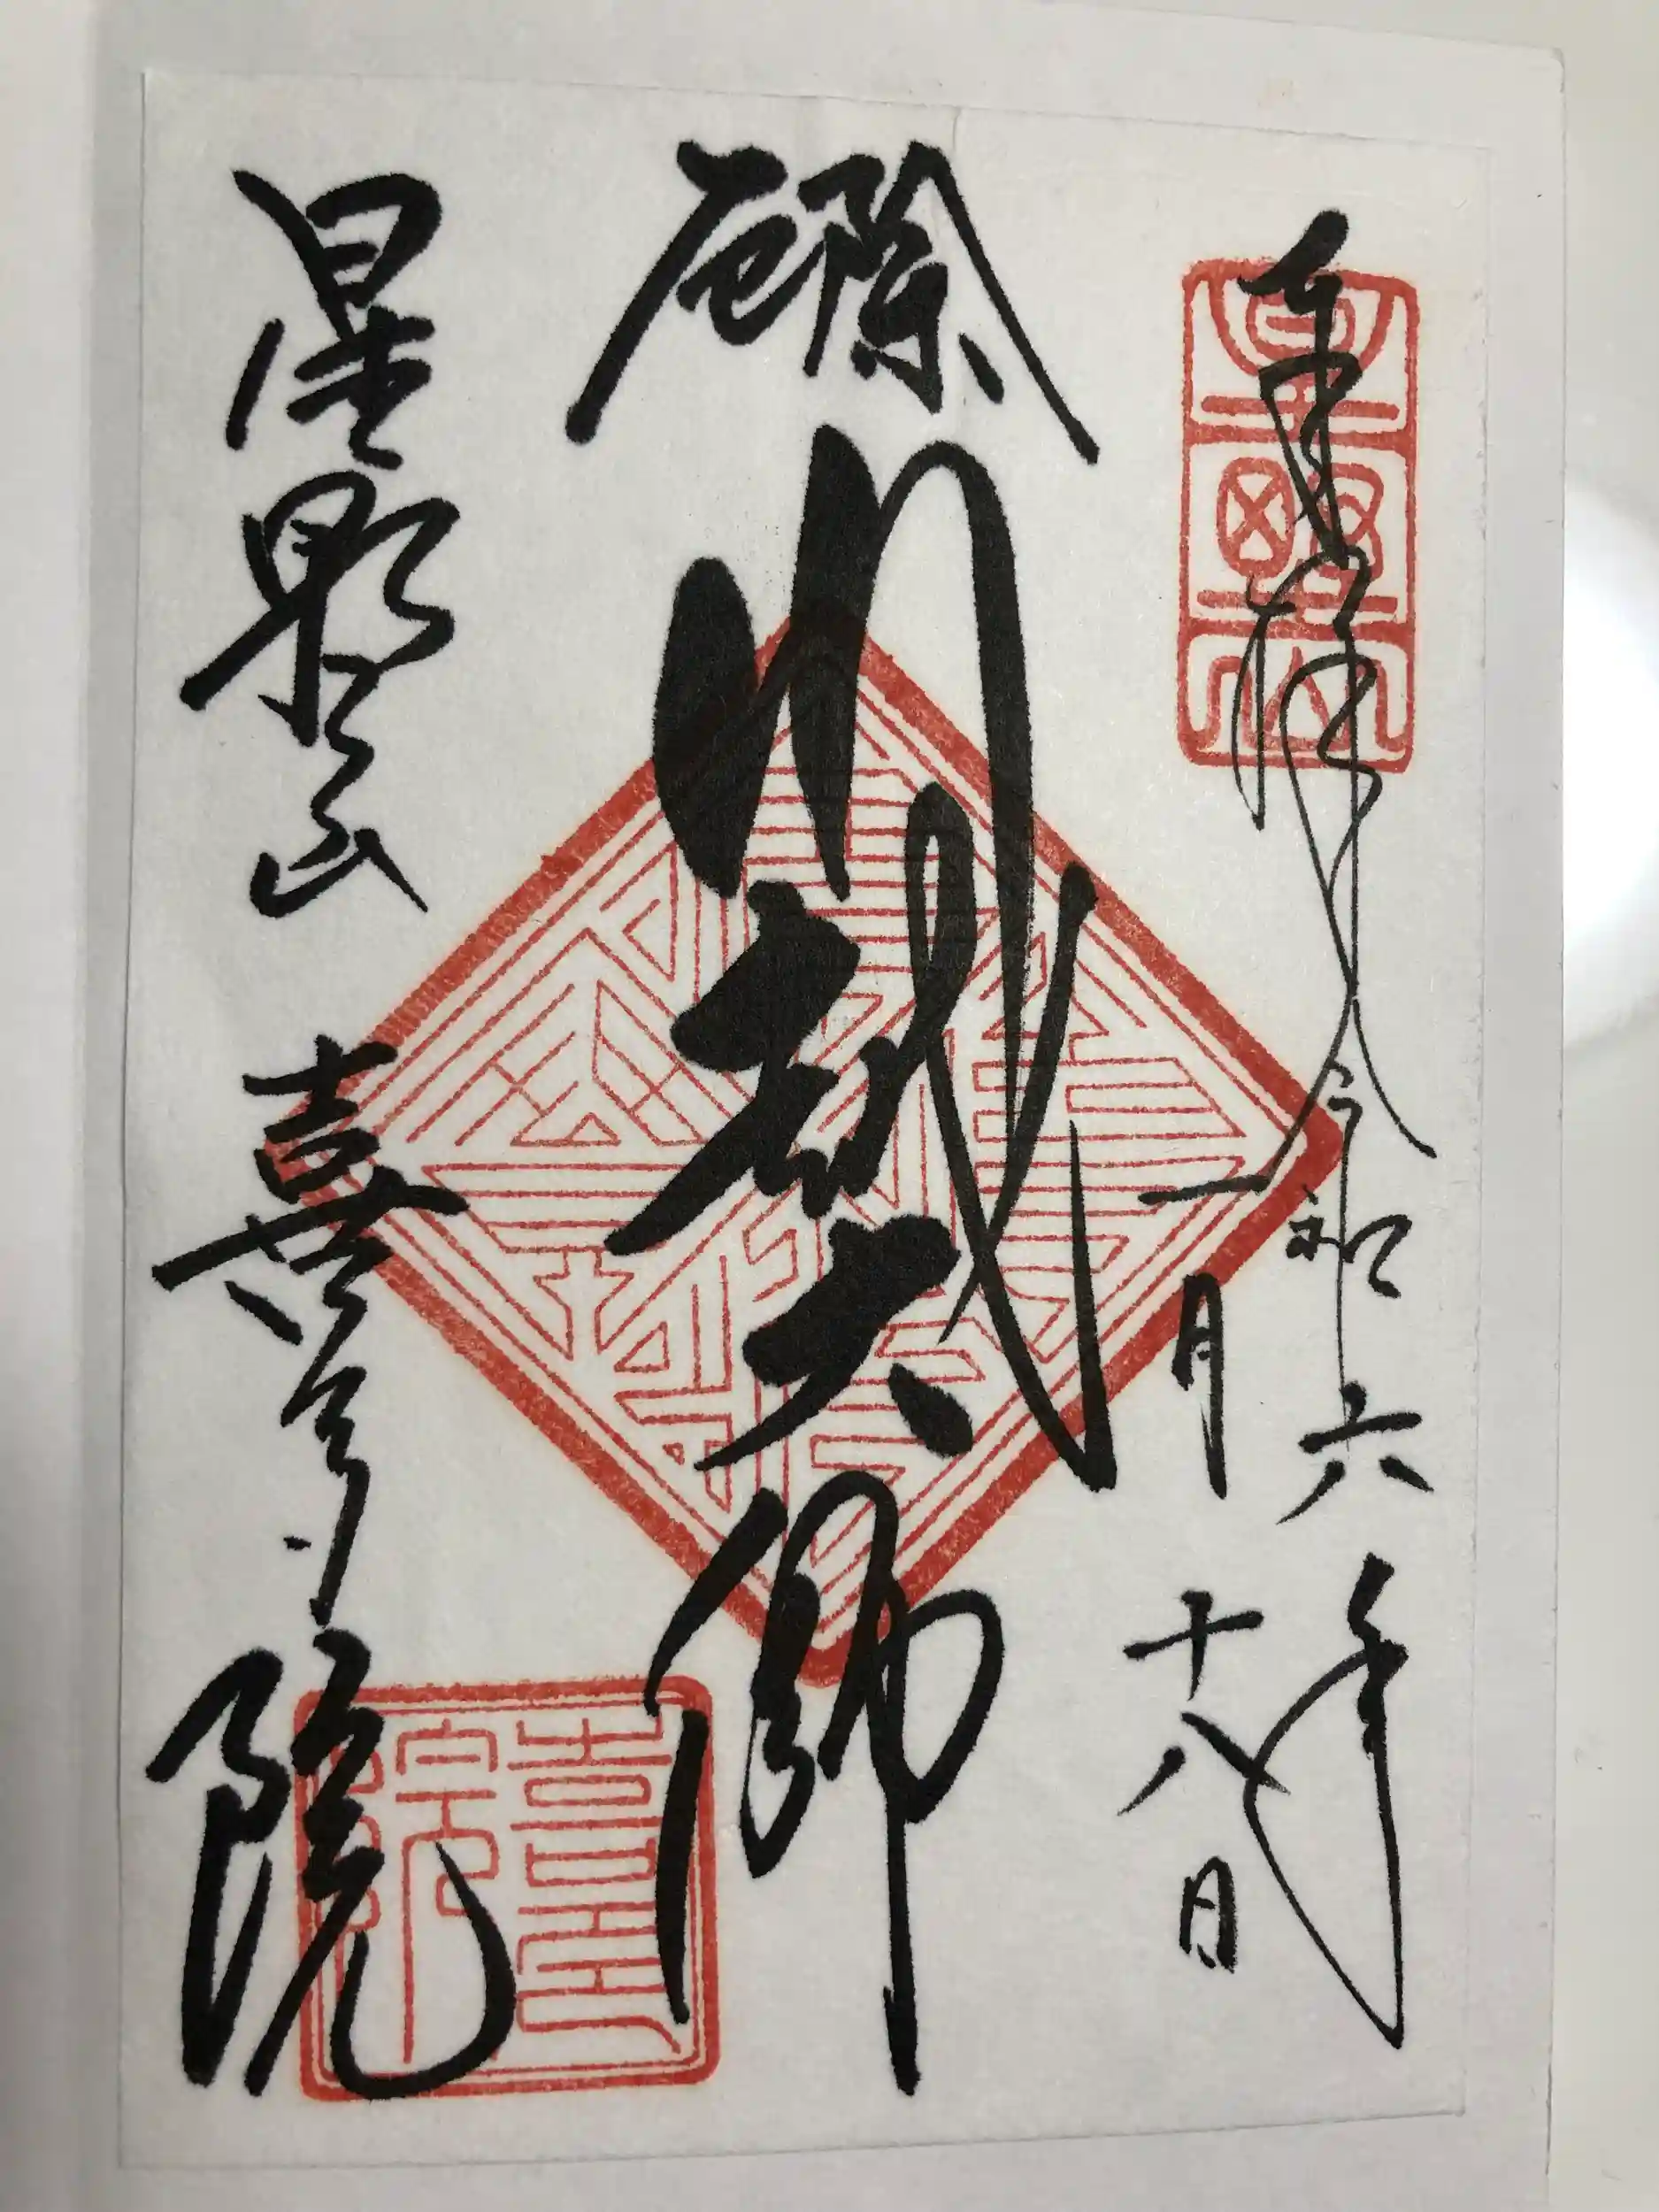 奉拝
令和六年
一月
十八日
厄除
川越大師
星野山 喜多院
喜多院